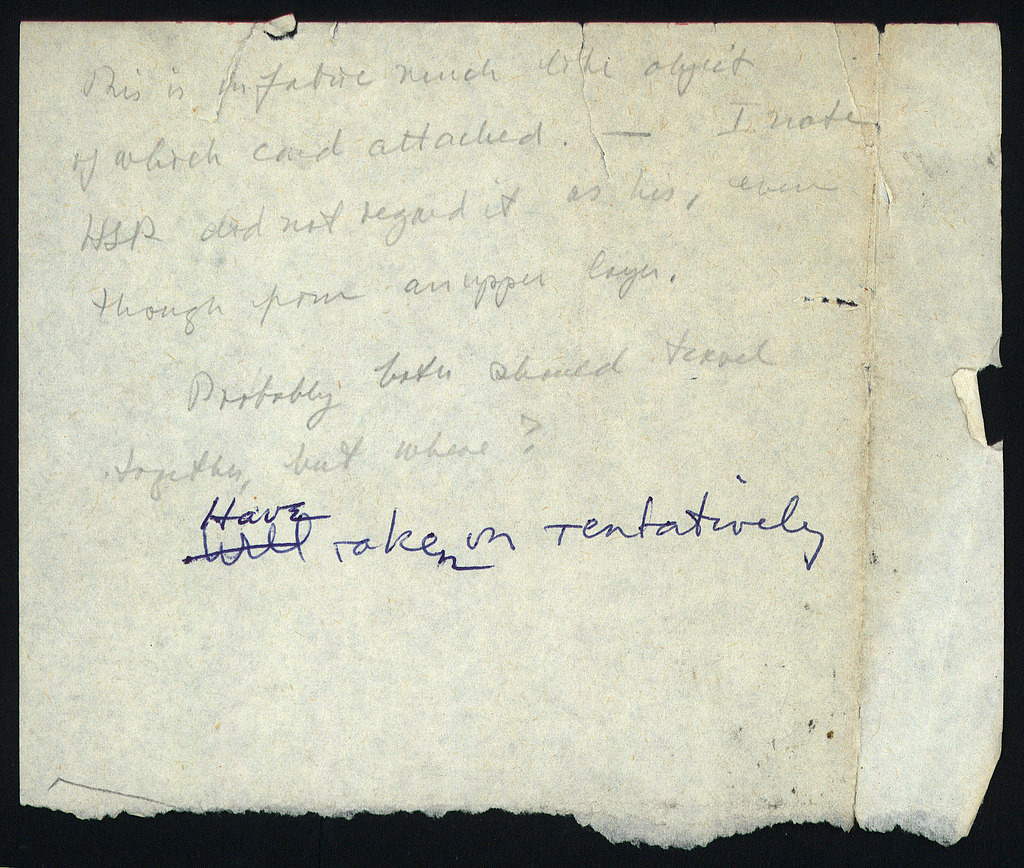 This is in fabric much like object
of which card attached. — I note
HSR did not regard it as his, even
though from an upper layer.
Probably both should travel
together, but where?
Have
Will taken on tentatively